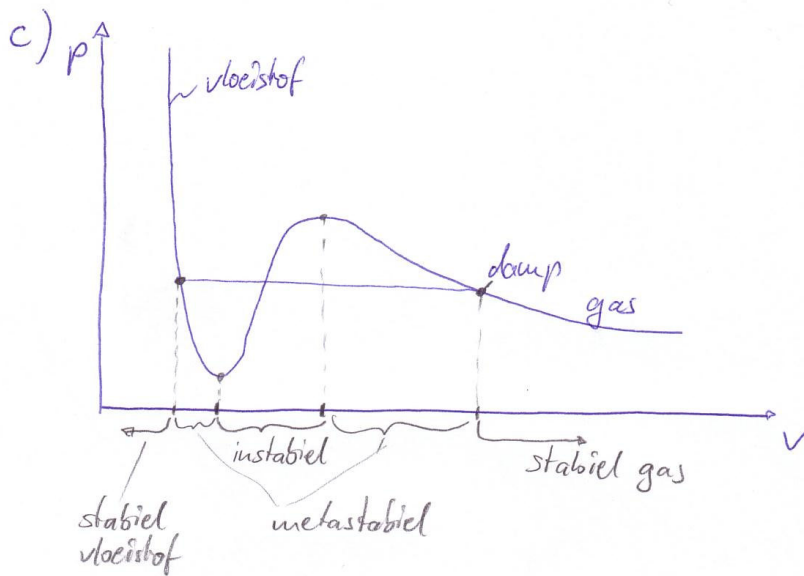 c) p
vloeistof
damp
gas
V
instabiel
stabiel gas
stabiel
vloeistof
metastabiel